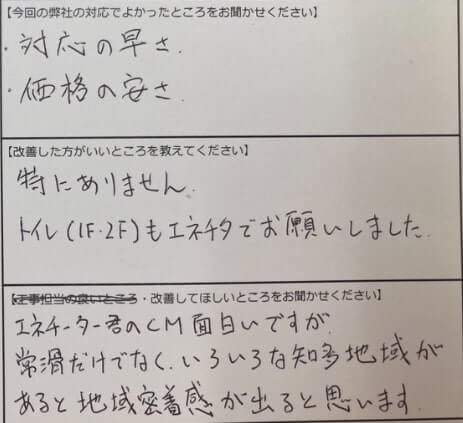 【今回の弊社の対応でよかったところをお聞かせください】
・対応の早さ.
・価格の安さ.
【改善した方がいいところを教えてください】
特にありません.
トイレ(1F・2F)もエネチタでお願いしました.
【工事担当の良いところ・改善してほしいところをお聞かせください】
エネチーター君のCM面白いですが、
常滑だけでなく、いろいろな知多地域が
あると地域密着感が出ると思います.